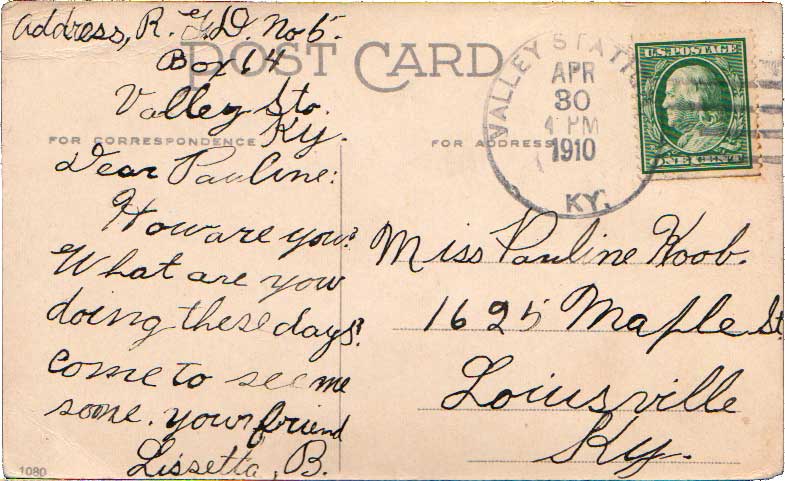 Address, R. F. D. No 5.
Box 14
POST CARD
Valley Sta.
Ky.
FOR CORRESPONDENCE
Dear Pauline:
How are you?
What are you
doing these days?
come to see me
some. your friend
Lissetta, B.
1080
VALLEY STATION
APR
30
4 PM
1910
KY.
U.S. POSTAGE
ONE CENT
FOR ADDRESS
Miss Pauline Koob.
1625 Maple St.
Loiusville
Ky.